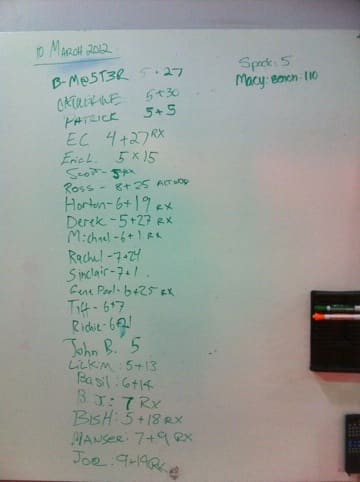 10 MARCH 2012
B-M@ST3R 5+27
CATHERINE 5+30
PATRICK 5+5
EC 4+27 RX
Eric L 5x15
Scott - 5 RX
Ross - 8+25
Horton - 6+19 RX
Derek - 5+27 RX
Michael - 6+1 RX
Rachel - 7+24
Sinclair - 7+1
Gene Pool - 6+25 RX
Tiff - 6+7
Richie - 6+21
John B. 5
Lil Kim: 5+13
Basil: 6+14
B.J.: 7 RX
BISH: 5+18 RX
MANSER: 7+9 RX
JOE: 9+19 RX
Spock: 5
Macy: BENCH: 110